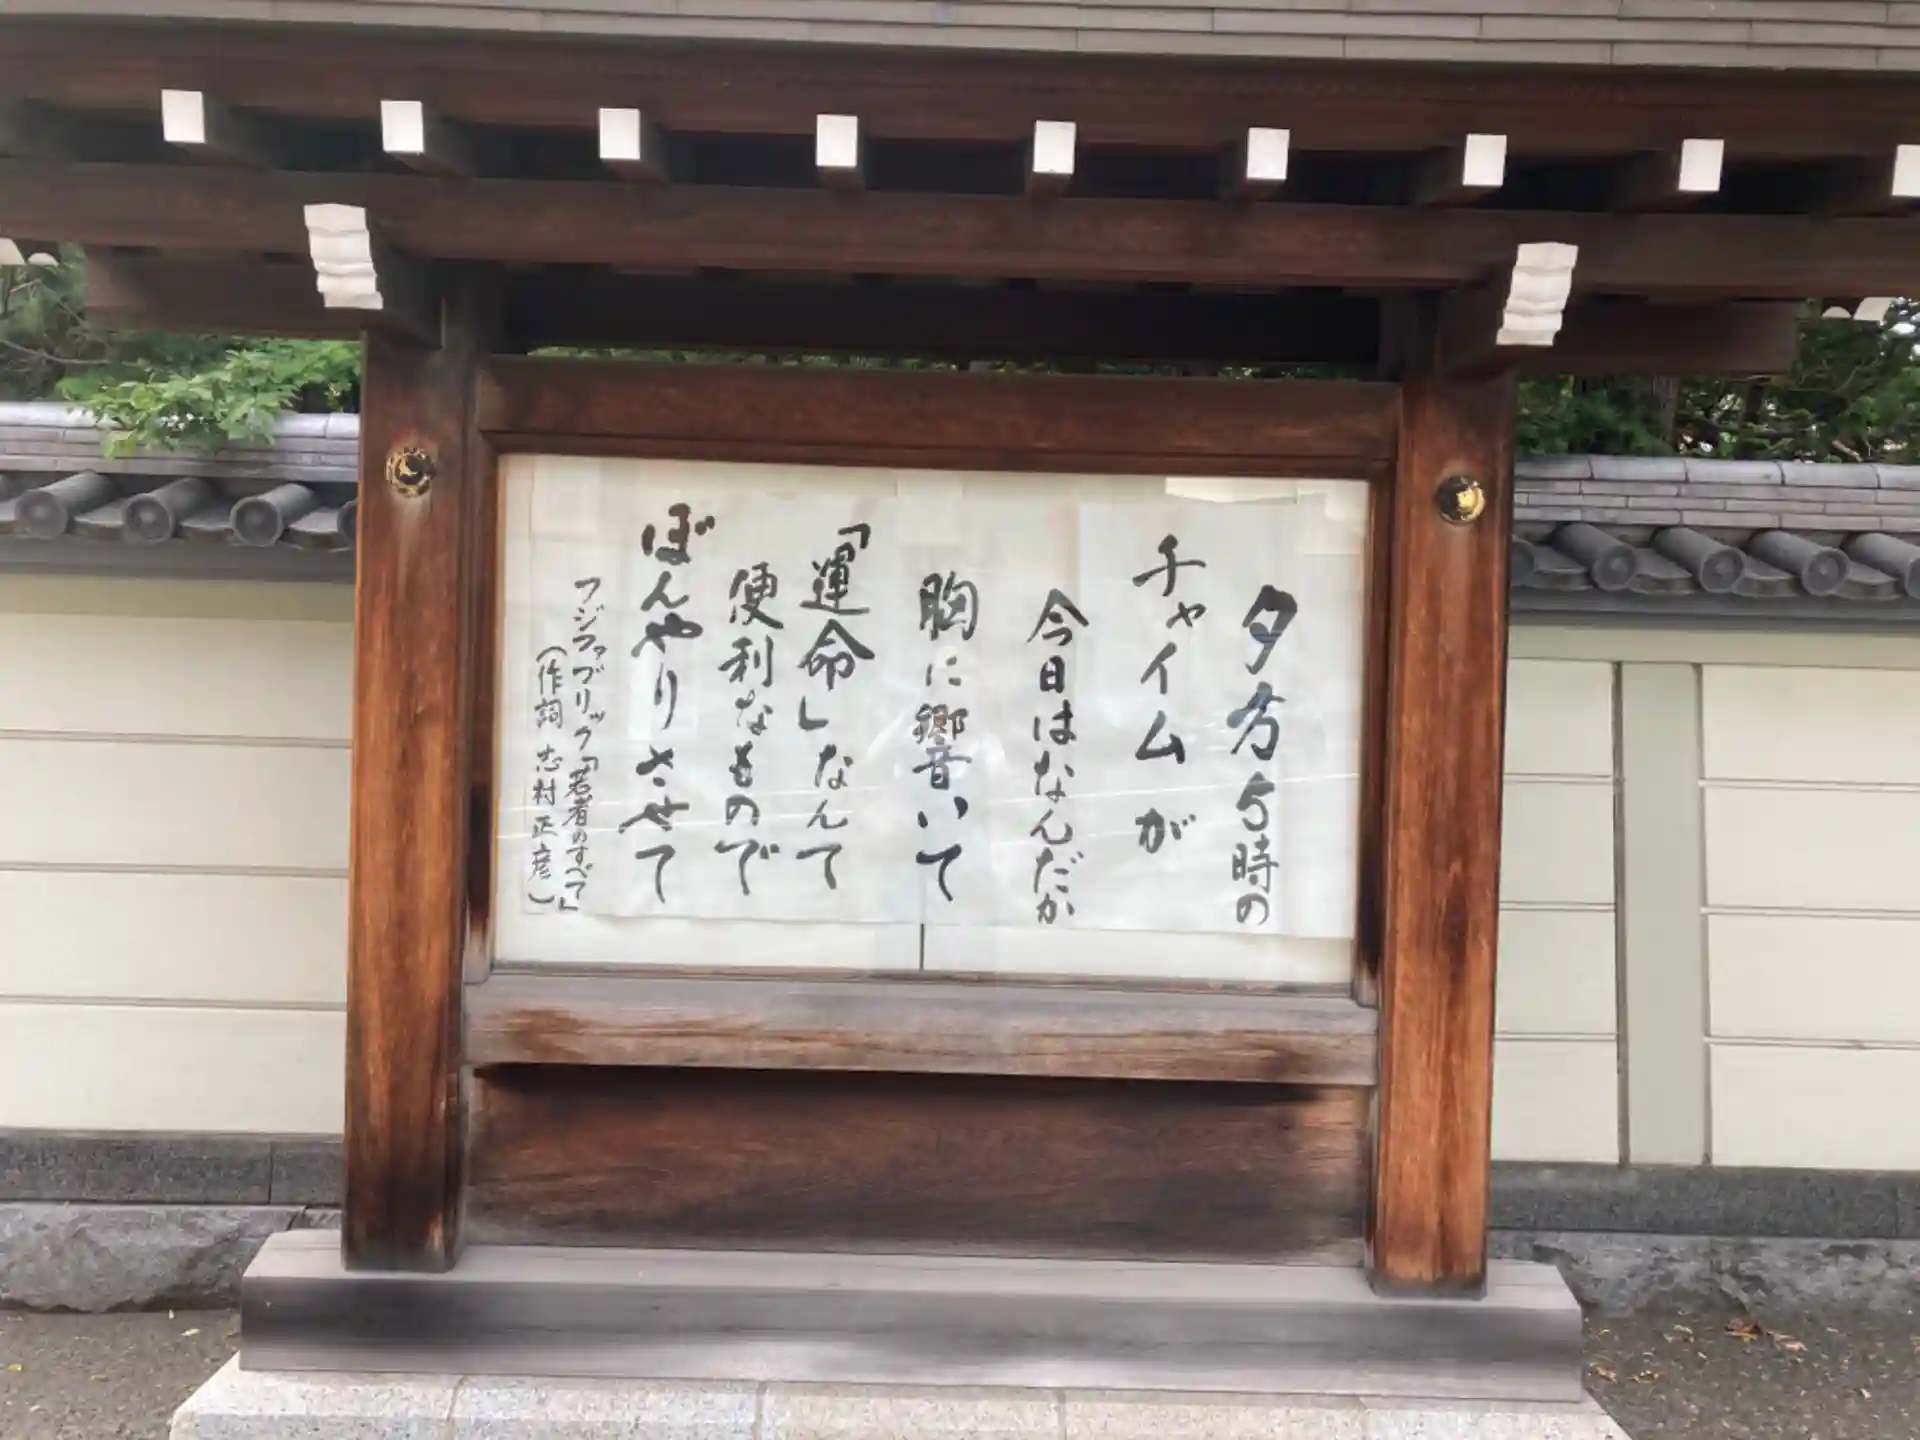 夕方5時の
チャイムが
今日はなんだか
胸に響いて
「運命」なんて
便利なもので
ぼんやりさせて
フジファブリック「若者のすべて」
(作詞 志村正彦)